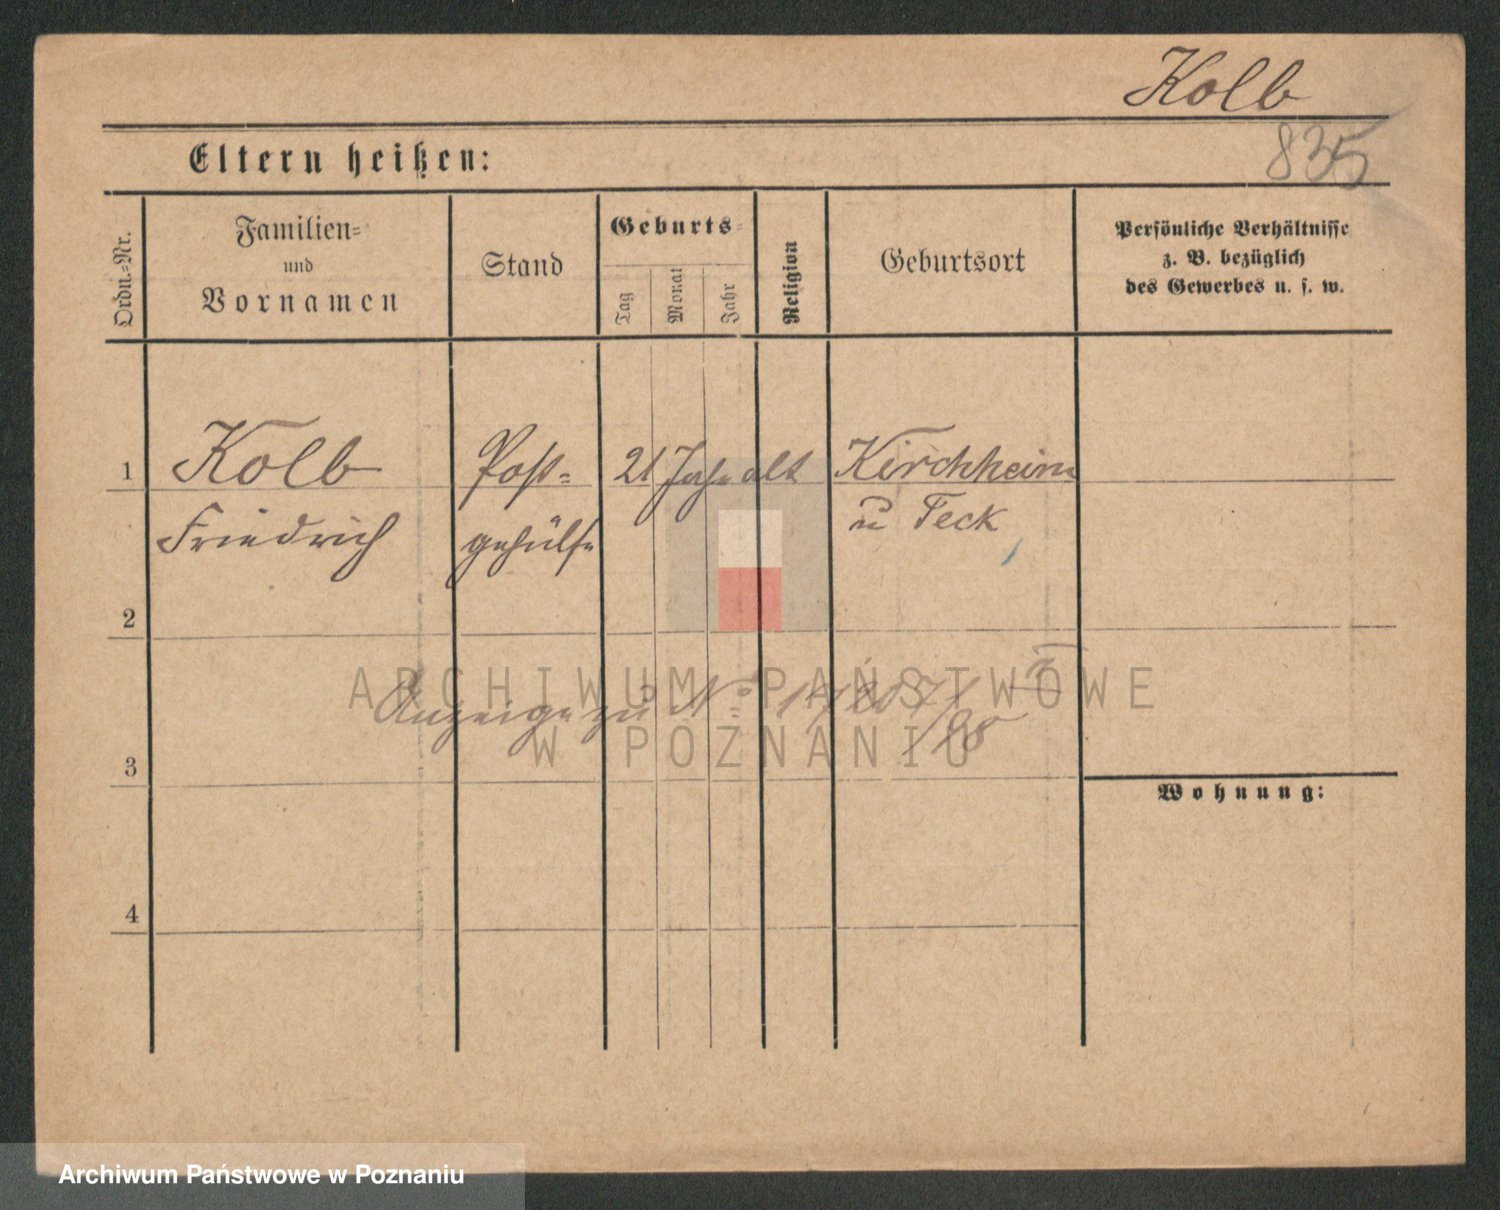 Kolb
835
Eltern heißen:
Ordn.-Nr.
Familien-
und
Vornamen
Stand
Geburts-
Tag
Monat
Jahr
Religion
Geburtsort
Persönliche Verhältnisse
z. B. bezüglich
des Gewerbes u. s. w.
1
Kolb
Friedrich
Post-
gehülfe
21 Jahr alt
Kirchheim
u Teck
2
Anzeige zu No
/98
3
Wohnung:
4
ARCHIWUM PAŃSTWOWE
W POZNANIU
Archiwum Państwowe w Poznaniu